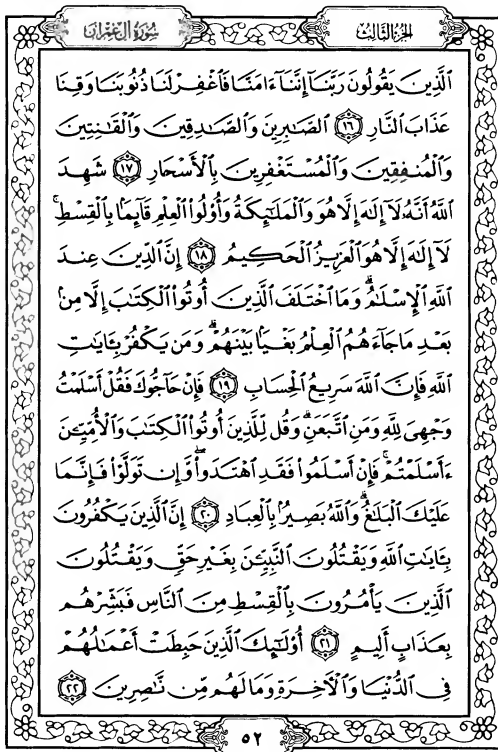 الجزء الثالث
سورة آل عمران
ٱلَّذِينَ يَقُولُونَ رَبَّنَآ إِنَّنَآ ءَامَنَّا فَٱغْفِرْ لَنَا ذُنُوبَنَا وَقِنَا
عَذَابَ ٱلنَّارِ ١٦ ٱلصَّـٰبِرِينَ وَٱلصَّـٰدِقِينَ وَٱلْقَـٰنِتِينَ
وَٱلْمُنفِقِينَ وَٱلْمُسْتَغْفِرِينَ بِٱلْأَسْحَارِ ١٧ شَهِدَ
ٱللَّهُ أَنَّهُۥ لَآ إِلَـٰهَ إِلَّا هُوَ وَٱلْمَلَـٰٓئِكَةُ وَأُو۟لُوا۟ ٱلْعِلْمِ قَآئِمًۢا بِٱلْقِسْطِ ۚ
لَآ إِلَـٰهَ إِلَّا هُوَ ٱلْعَزِيزُ ٱلْحَكِيمُ ١٨ إِنَّ ٱلدِّينَ عِندَ
ٱللَّهِ ٱلْإِسْلَـٰمُ ۗ وَمَا ٱخْتَلَفَ ٱلَّذِينَ أُوتُوا۟ ٱلْكِتَـٰبَ إِلَّا مِنۢ
بَعْدِ مَا جَآءَهُمُ ٱلْعِلْمُ بَغْيًۢا بَيْنَهُمْ ۗ وَمَن يَكْفُرْ بِـَٔايَـٰتِ
ٱللَّهِ فَإِنَّ ٱللَّهَ سَرِيعُ ٱلْحِسَابِ ١٩ فَإِنْ حَآجُّوكَ فَقُلْ أَسْلَمْتُ
وَجْهِىَ لِلَّهِ وَمَنِ ٱتَّبَعَنِ ۗ وَقُل لِّلَّذِينَ أُوتُوا۟ ٱلْكِتَـٰبَ وَٱلْأُمِّيِّـۧنَ
ءَأَسْلَمْتُمْ ۚ فَإِنْ أَسْلَمُوا۟ فَقَدِ ٱهْتَدَوا۟ ۖ وَّإِن تَوَلَّوْا۟ فَإِنَّمَا
عَلَيْكَ ٱلْبَلَـٰغُ ۗ وَٱللَّهُ بَصِيرٌۢ بِٱلْعِبَادِ ٢٠ إِنَّ ٱلَّذِينَ يَكْفُرُونَ
بِـَٔايَـٰتِ ٱللَّهِ وَيَقْتُلُونَ ٱلنَّبِيِّـۧنَ بِغَيْرِ حَقٍّ وَيَقْتُلُونَ
ٱلَّذِينَ يَأْمُرُونَ بِٱلْقِسْطِ مِنَ ٱلنَّاسِ فَبَشِّرْهُم
بِعَذَابٍ أَلِيمٍ ٢١ أُو۟لَـٰٓئِكَ ٱلَّذِينَ حَبِطَتْ أَعْمَـٰلُهُمْ
فِى ٱلدُّنْيَا وَٱلْـَٔاخِرَةِ وَمَا لَهُم مِّن نَّـٰصِرِينَ ٢٢
٥٢